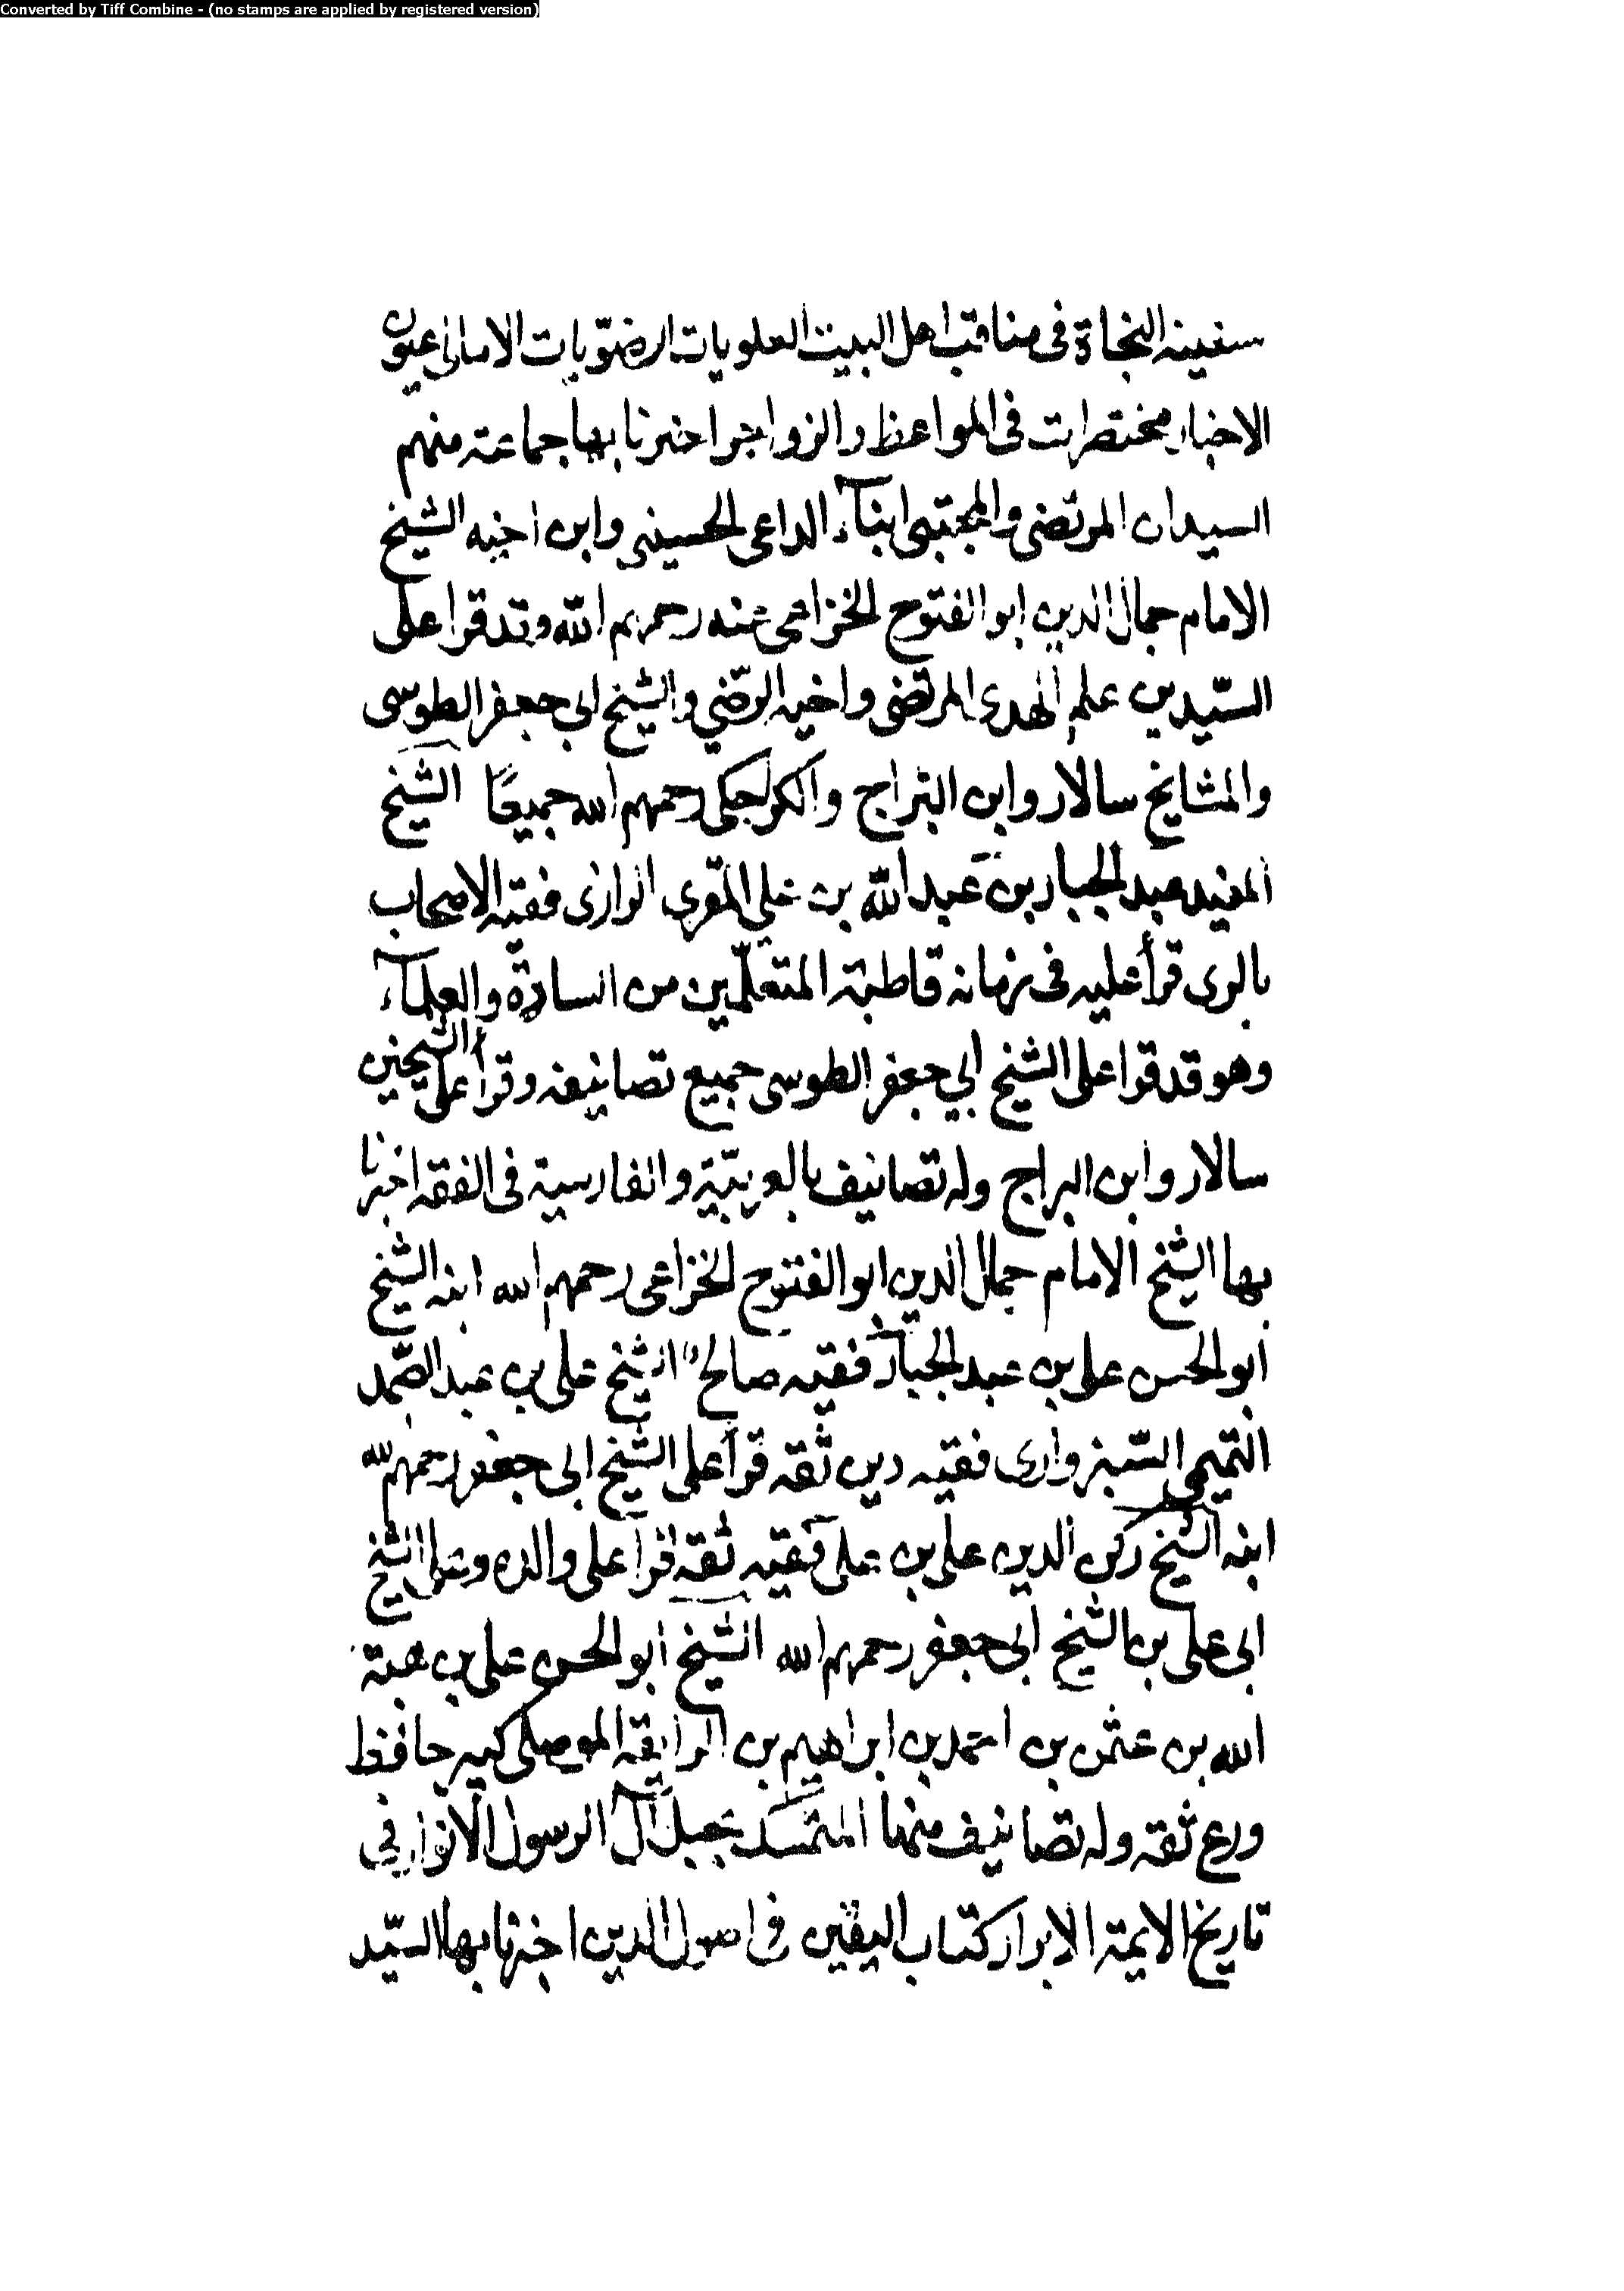 Converted by Tiff Combine - (no stamps are applied by registered version)
سفينه النجاة فى مناقب اهل البيت العلويات الرضويات الامالى عيون
الاخبار مختصرات فى المواعظ والزواجر اخبرنا بها جماعة منهم
السيدان المرتضى والمجتبى ابنآء الداعى الحسينى وابن اخيه الشيخ
الامام جمال الدين ابو الفتوح الخزاعى عنه رحمهم الله وقد قرا على
السّيدين علم الهدى المرتضى واخيه الرّضي والشيخ ابى جعفر الطوسى
والمشايخ سالار وابن البرّاج والكراجكى رحمهم الله جميعًا الشيخ
المفيد عبد الجبار بن عبد الله بن على المقرى الرازى فقيه الاصحاب
بالرى قرأ عليه فى زمانه قاطبة المتعلّمين من السادة والعلمآء
وهو قد قرا على الشيخ ابي جعفر الطوسى جميع تصانيفه وقرأ على الشيخين
سالار وابن البراج وله تصانيف بالعربيّة والفارسية فى الفقه اخبرنا
بها الشيخ الامام جمال الدين ابو الفتوح الخزاعى رحمهم الله ابنه الشيخ
ابو الحسن على بن عبد الجبار فقيه صالح الشيخ على بن عبد الصّمد
التميمى السّبزوارى فقيه دين ثقه قرأ على الشيخ ابى جعفر رحمهم الله
ابنه الشيخ ركن الدين على بن على فقيه ثقه قرأ على والده وعلى الشيخ
ابى على بن الشيخ ابى جعفر رحمهم الله الشيخ ابو الحسن على بن هبة
الله بن عثمن بن احمد بن ابراهيم بن الرايقة الموصلى كبير حافظ
ورع ثقه وله تصانيف منها المتمسك بحبل آل الرسول الانوار فى
تاريخ الايمة الابرار كتاب اليقين فى اصول الدين اخبرنا بها السيّد